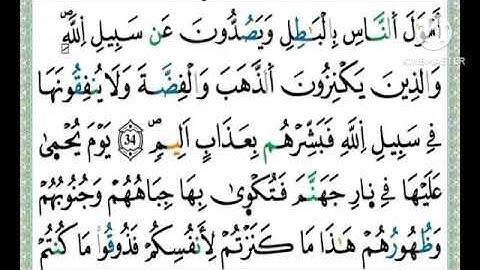 أَمْوَٰلَ اَ۬لنَّاسِ بِالْبَٰطِلِ وَيَصُدُّونَ عَن سَبِيلِ اِ۬للَّهِۖ
وَالذِينَ يَكْنِزُونَ اَ۬لذَّهَبَ وَالْفِضَّةَ وَلَا يُنفِقُونَهَا
فِے سَبِيلِ اِ۬للَّهِ فَبَشِّرْهُم بِعَذَابٍ اَلِيمٖۖ 34 يَوْمَ يُحْم۪يٰ
عَلَيْهَا فِے نَارِ جَهَنَّمَ فَتُكْو۪يٰ بِهَا جِبَاهُهُمْ وَجُنُوبُهُمْ
وَظُهُورُهُمْ هَٰذَا مَا كَنَزْتُمْ لِأَنفُسِكُمْ فَذُوقُواْ مَا كُنتُمْ